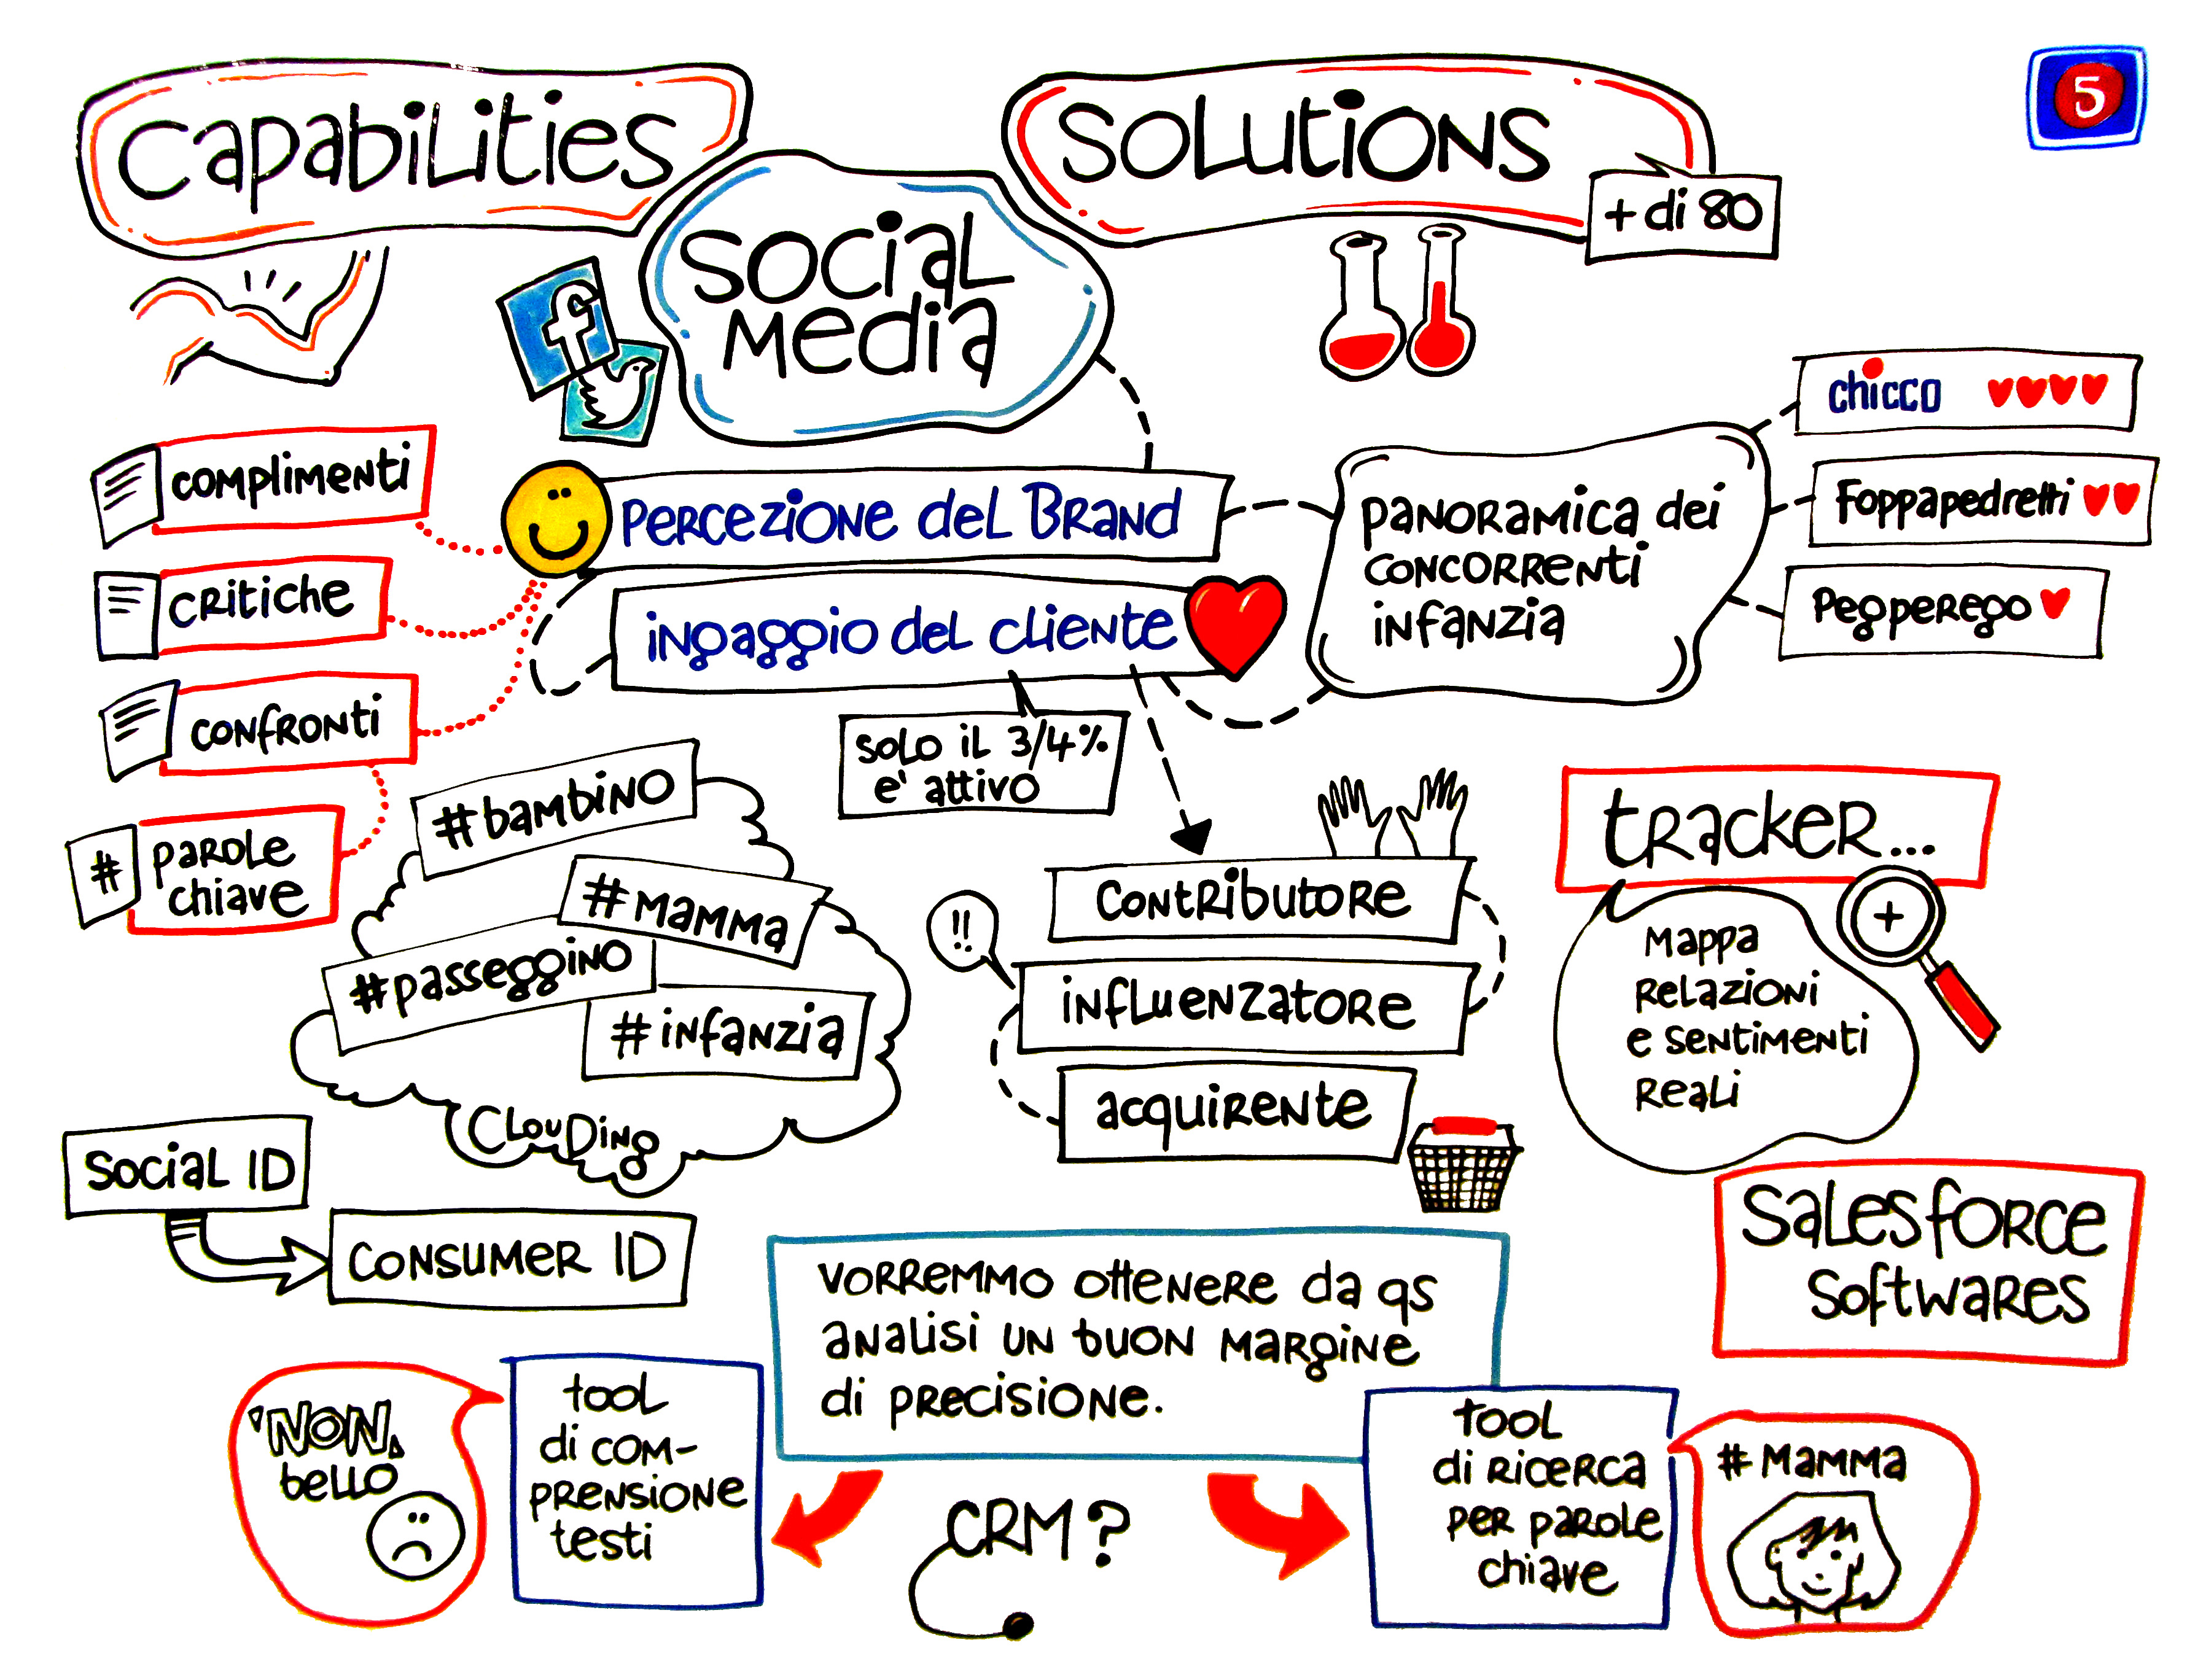 Capabilities
Solutions
5
+ di 80
Social
Media
f
complimenti
critiche
confronti
#
parole
chiave
percezione del Brand
ingaggio del cliente
solo il 3/4%
e' attivo
panoramica dei
concorrenti
infanzia
chicco
Foppapedretti
Pegperego
#bambino
#mamma
#passeggino
#infanzia
Clouding
!!
Contributore
influenzatore
acquirente
tracker...
+
Mappa
relazioni
e sentimenti
reali
Social ID
Consumer ID
Salesforce
Softwares
vorremmo ottenere da qs
analisi un buon margine
di precisione.
'NON,
bello
tool
di com-
prensione
testi
CRM?
tool
di ricerca
per parole
chiave
#mamma